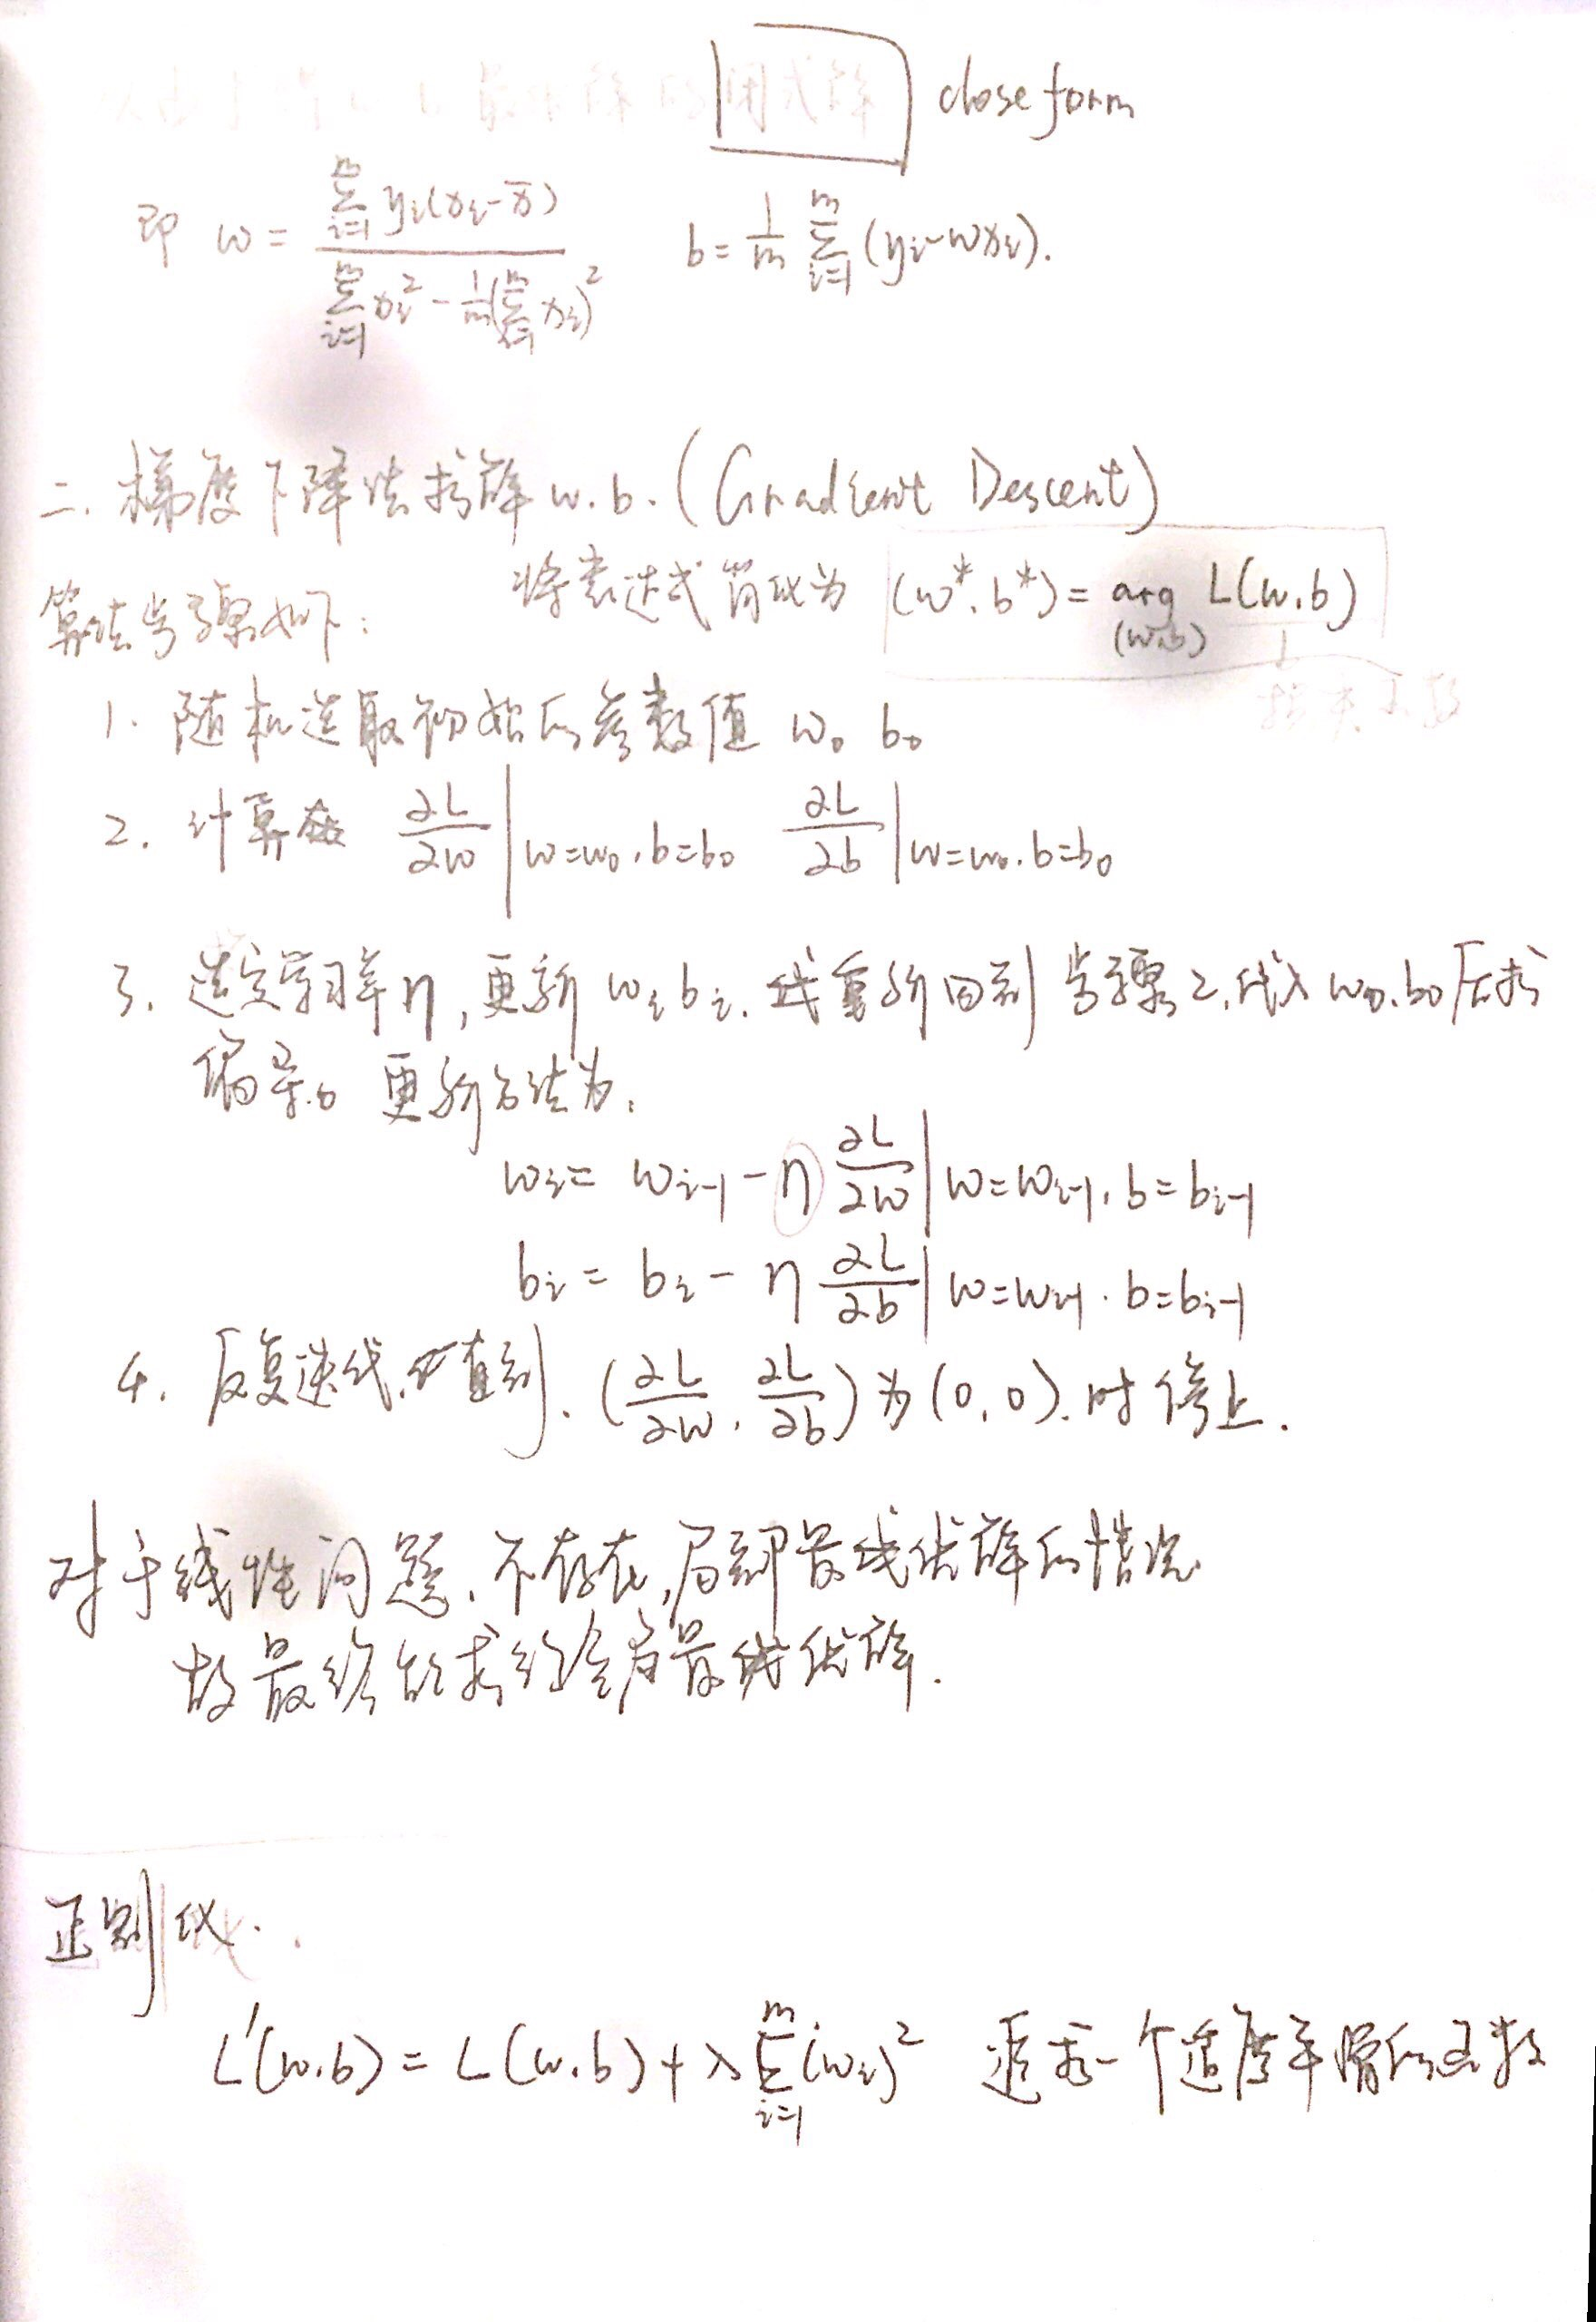 close form
即 w = \frac{\sum_{i=1}^{m} y_i(x_i-\bar{x})}{\sum_{i=1}^{m} x_i^2 - \frac{1}{m}(\sum_{i=1}^{m} x_i)^2} b = \frac{1}{m} \sum_{i=1}^{m} (y_i-wx_i).
二. 梯度下降法求解 w.b. (Gradient Descent)
将表达式简化为 (w*.b*) = arg_{(w.b)} L(w.b)
算法步骤如下:
1. 随机选取初始的参数值 w₀ b₀
2. 计算在 \frac{∂L}{∂w}|w=w₀.b=b₀ \frac{∂L}{∂b}|w=w₀.b=b₀
3. 选定学习率η, 更新 wᵢ bᵢ. 重新回到步骤2,代入 w₀.b₀ 后求
偏导。更新方法为:
wᵢ = wᵢ₋₁ - η \frac{∂L}{∂w}|w=wᵢ₋₁.b=bᵢ₋₁
bᵢ = bᵢ - η \frac{∂L}{∂b}|w=wᵢ₋₁.b=bᵢ₋₁
4. 反复迭代.直到.(\frac{∂L}{∂w}.\frac{∂L}{∂b})为(0,0).时停止.
对于线性问题.不存在,局部最优解的情况.
故最终能求得全局最优解.
正则化.
L'(w.b) = L(w.b) + λ\sum_{i=1}^{m}(wᵢ)² 追求一个适度平滑的函数